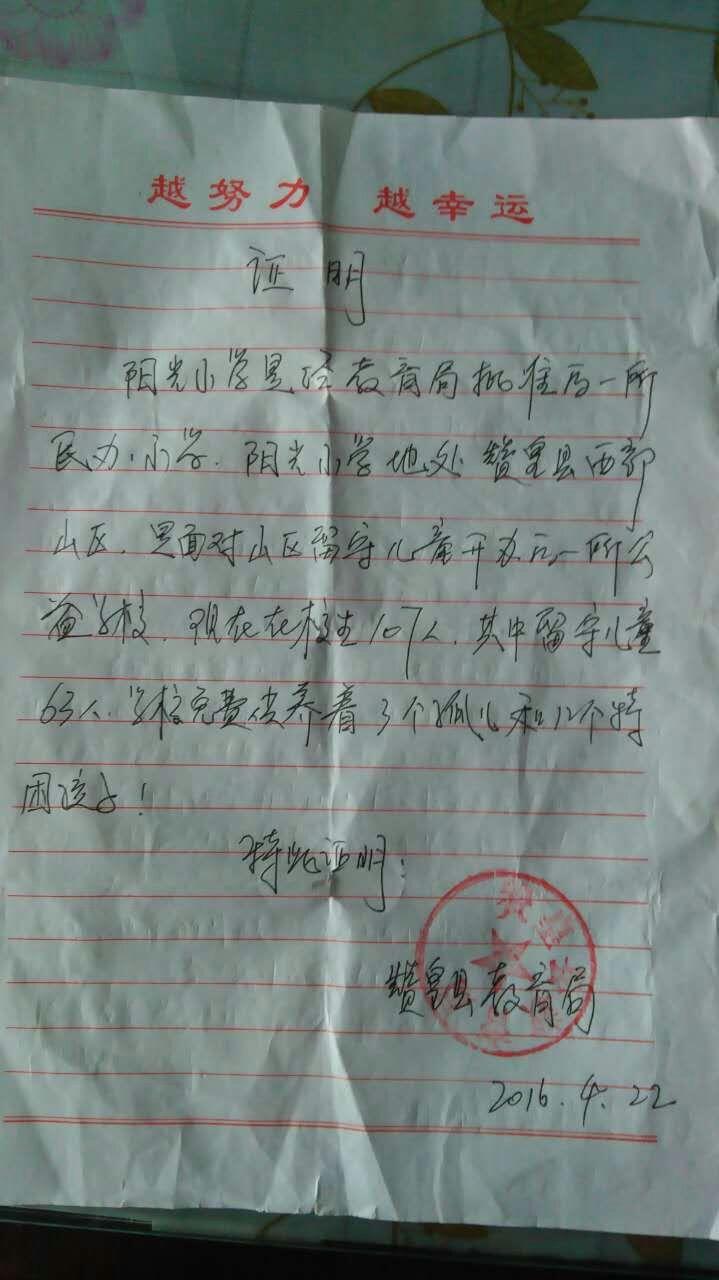 越努力 越幸运
证明
阳光小学是经教育局批准的一所
民办小学. 阳光小学地处赞皇县西部
山区. 是面对山区留守儿童开办的一所公
益学校. 现在在校生107人. 其中留守儿童
63人. 学校免费供养着3个孤儿和12个特
困孩子!
特此证明:
赞皇县教育局
2016.4.22